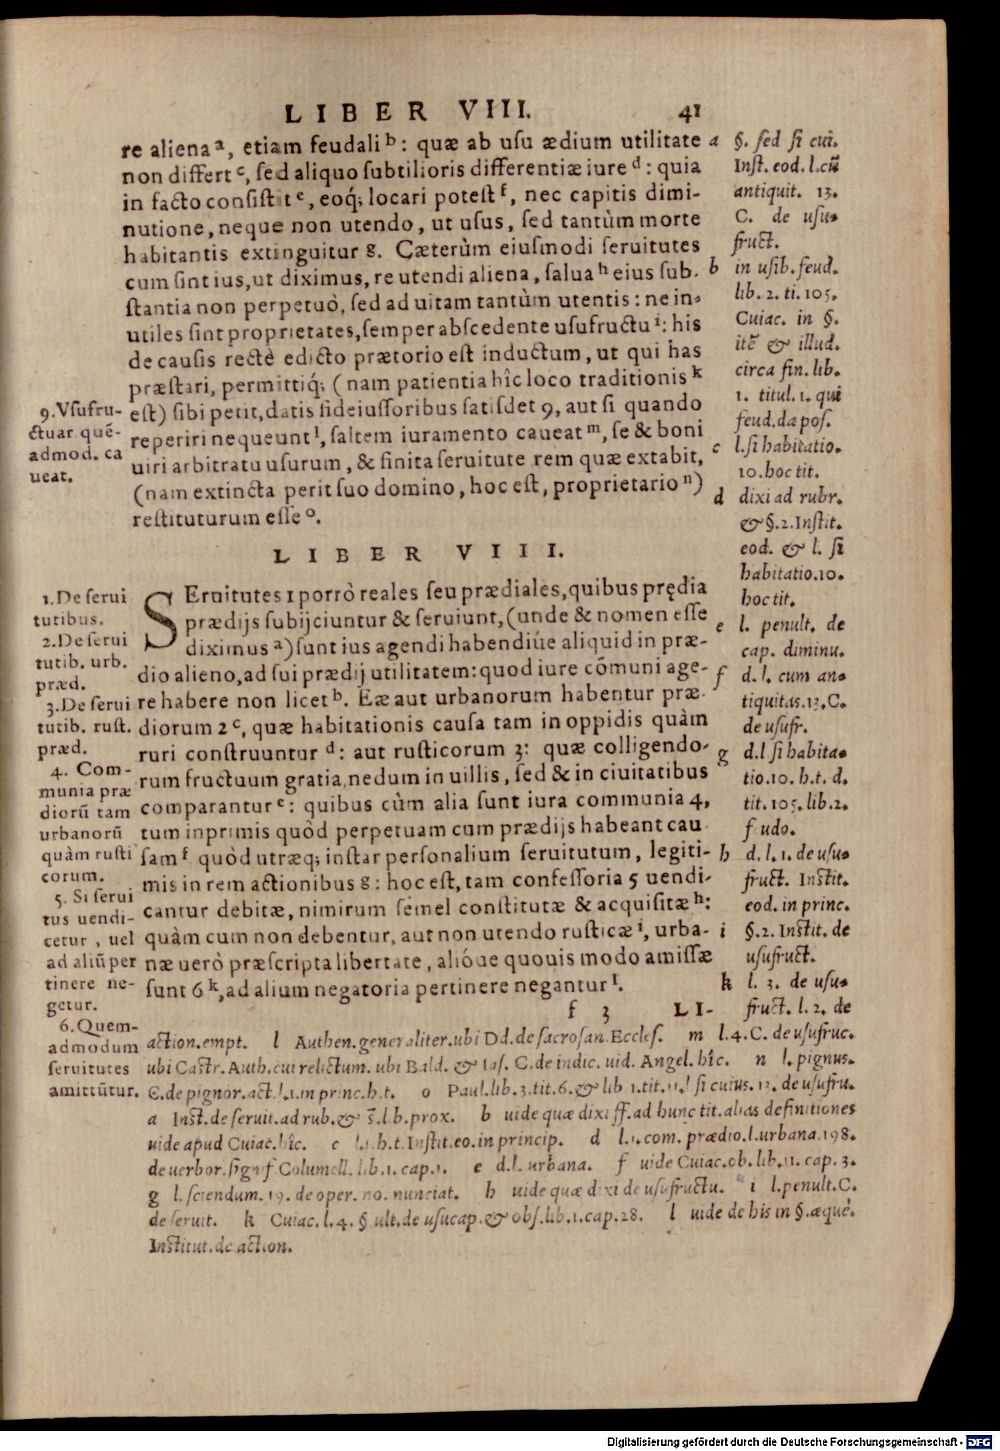 LIBER VIII. 41
re aliena a, etiam feudali b: quæ ab usu ædium utilitate
non differt c, sed aliquo subtilioris differentiæ iure d: quia
in facto consistit e, eoq́; locari potest f, nec capitis dimi-
nutione, neque non utendo, ut usus, sed tantùm morte
habitantis extinguitur g. Cæterùm eiusmodi seruitutes
cum sint ius, ut diximus, re utendi aliena, salua h eius sub-
stantia non perpetuò, sed ad uitam tantùm utentis: ne in-
utiles sint proprietates, semper abscedente usufructu i: his
de causis rectè edicto prætorio est inductum, ut qui has
præstari, permittiq́; (nam patientia hîc loco traditionis k
est) sibi petit, datis fideiussoribus satisdet 9, aut si quando
reperiri nequeunt l, saltem iuramento caueat m, se & boni
uiri arbitratu usurum, & finita seruitute rem quæ extabit,
(nam extincta perit suo domino, hoc est, proprietario n)
restituturum esse o.
9. Vsufru-
ctuar. quē-
admod. ca
ueat.
LIBER VIII.
SEruitutes 1 porrò reales seu prædiales, quibus prędia
prædijs subijciuntur & seruiunt, (unde & nomen esse
diximus a) sunt ius agendi habendiúe aliquid in præ-
dio alieno, ad sui prædij utilitatem: quod iure cōmuni age-
re habere non licet b. Eæ aut urbanorum habentur præ-
diorum 2 c, quæ habitationis causa tam in oppidis quàm
ruri construuntur d: aut rusticorum 3: quæ colligendo-
rum fructuum gratia, nedum in uillis, sed & in ciuitatibus
comparantur e: quibus cùm alia sunt iura communia 4,
tum inprimis quòd perpetuam cum prædijs habeant cau
sam f quòd utræq; instar personalium seruitutum, legiti-
mis in rem actionibus g: hoc est, tam confessoria 5 uendi-
cantur debitæ, nimirum sémel constitutæ & acquisitæ h:
quàm cum non debentur, aut non utendo rusticæ i, urba-
næ uerò præscripta libertate, alióue quouis modo amissæ
sunt 6 k, ad alium negatoria pertinere negantur l.
f 3 LI-
1. De serui
tutibus.
2. De serui
tutib. urb.
præd.
3. De serui
tutib. rust.
præd.
4. Com-
munia præ
diorū tam
urbanorū
quàm rusti
corum.
5. Si serui
tus uendi-
cetur, uel
ad aliū per
tinere ne-
getur.
6. Quem-
admodum
seruitutes
amittūtur.
a §. sed si cui.
Inst. eod. l. cū
antiquit. 13.
C. de usu-
fruct.
b in usib. feud.
lib. 2. ti. 105.
Cuiac. in §.
itē & illud.
circa fin. lib.
1. titul. 1. qui
feud. da pos.
c l. si habitatio.
10. hoc tit.
d dixi ad rubr.
& §. 2. Instit.
eod. & l. si
habitatio. 10.
hoc tit.
e l. penult. de
cap. diminu.
f d. l. cum an-
tiquitas. 13. C.
de usufr.
g d. l si habita-
tio. 10. h. t. d.
tit. 105. lib. 2.
f udo.
h d. l. 1. de usu-
fruct. Instit.
eod. in princ.
i §. 2. Instit. de
usufruct.
k l. 3. de usu-
fruct. l. 2. de
action. empt. l Authen. generaliter. ubi Dd. de sacrosan. Eccles. m l. 4. C. de usufruc.
ubi Castr. Auth. cui relictum. ubi Bald. & Ias. C. de indic. uid. Angel. hîc. n l. pignus.
C. de pignor. act. l. 1. in princ. h. t. o Paul. lib. 3. tit. 6. & lib. 1. tit. 11. l si cuius. 12. de usufru.
a Inst. de seruit. ad rub. & §. l. b. prox. b uide quæ dixi ff. ad hunc tit. alias definitiones
uide apud Cuiac. hîc. c l. 1. h. t. Instit. eo. in princip. d l. 1. com. prædio. l. urbana. 198.
de uerbor. signif Columell. lib. 1. cap. 1. e d. l. urbana. f uide Cuiac. ob. lib. 11. cap. 3.
g l. sciendum. 19. de oper. no. nunciat. h uide quæ dixi de usufructu. i l. penult. C.
de seruit. k Cuiac. l. 4. § ult. de usucap. & obs. lib. 1. cap. 28. l uide de his in §. æquè.
Institut. de action.
Digitalisierung gefördert durch die Deutsche Forschungsgemeinschaft - DFG